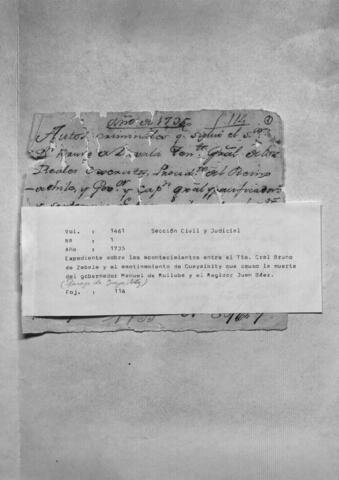 año de 1735 / 114 1
Autos criminales q. siguió el S.or
D.n Bruno de Zavala Ten.te Gral de los
Reales Exercitos, Presid.te del Reino
de Chile, y Gov.or y Cap.n gral y pacificador
Vol. : 1461 Sección Civil y Judicial
Nº : 1
Año : 1735
Expediente sobre los acontecimientos entre el Tte. Cnel Bruno
de Zabala y el amotinamiento de Guayaibity que causo la muerte
del gobernador Manuel de Ruiloba y el Regidor Juan Báez.
Foj. : 114